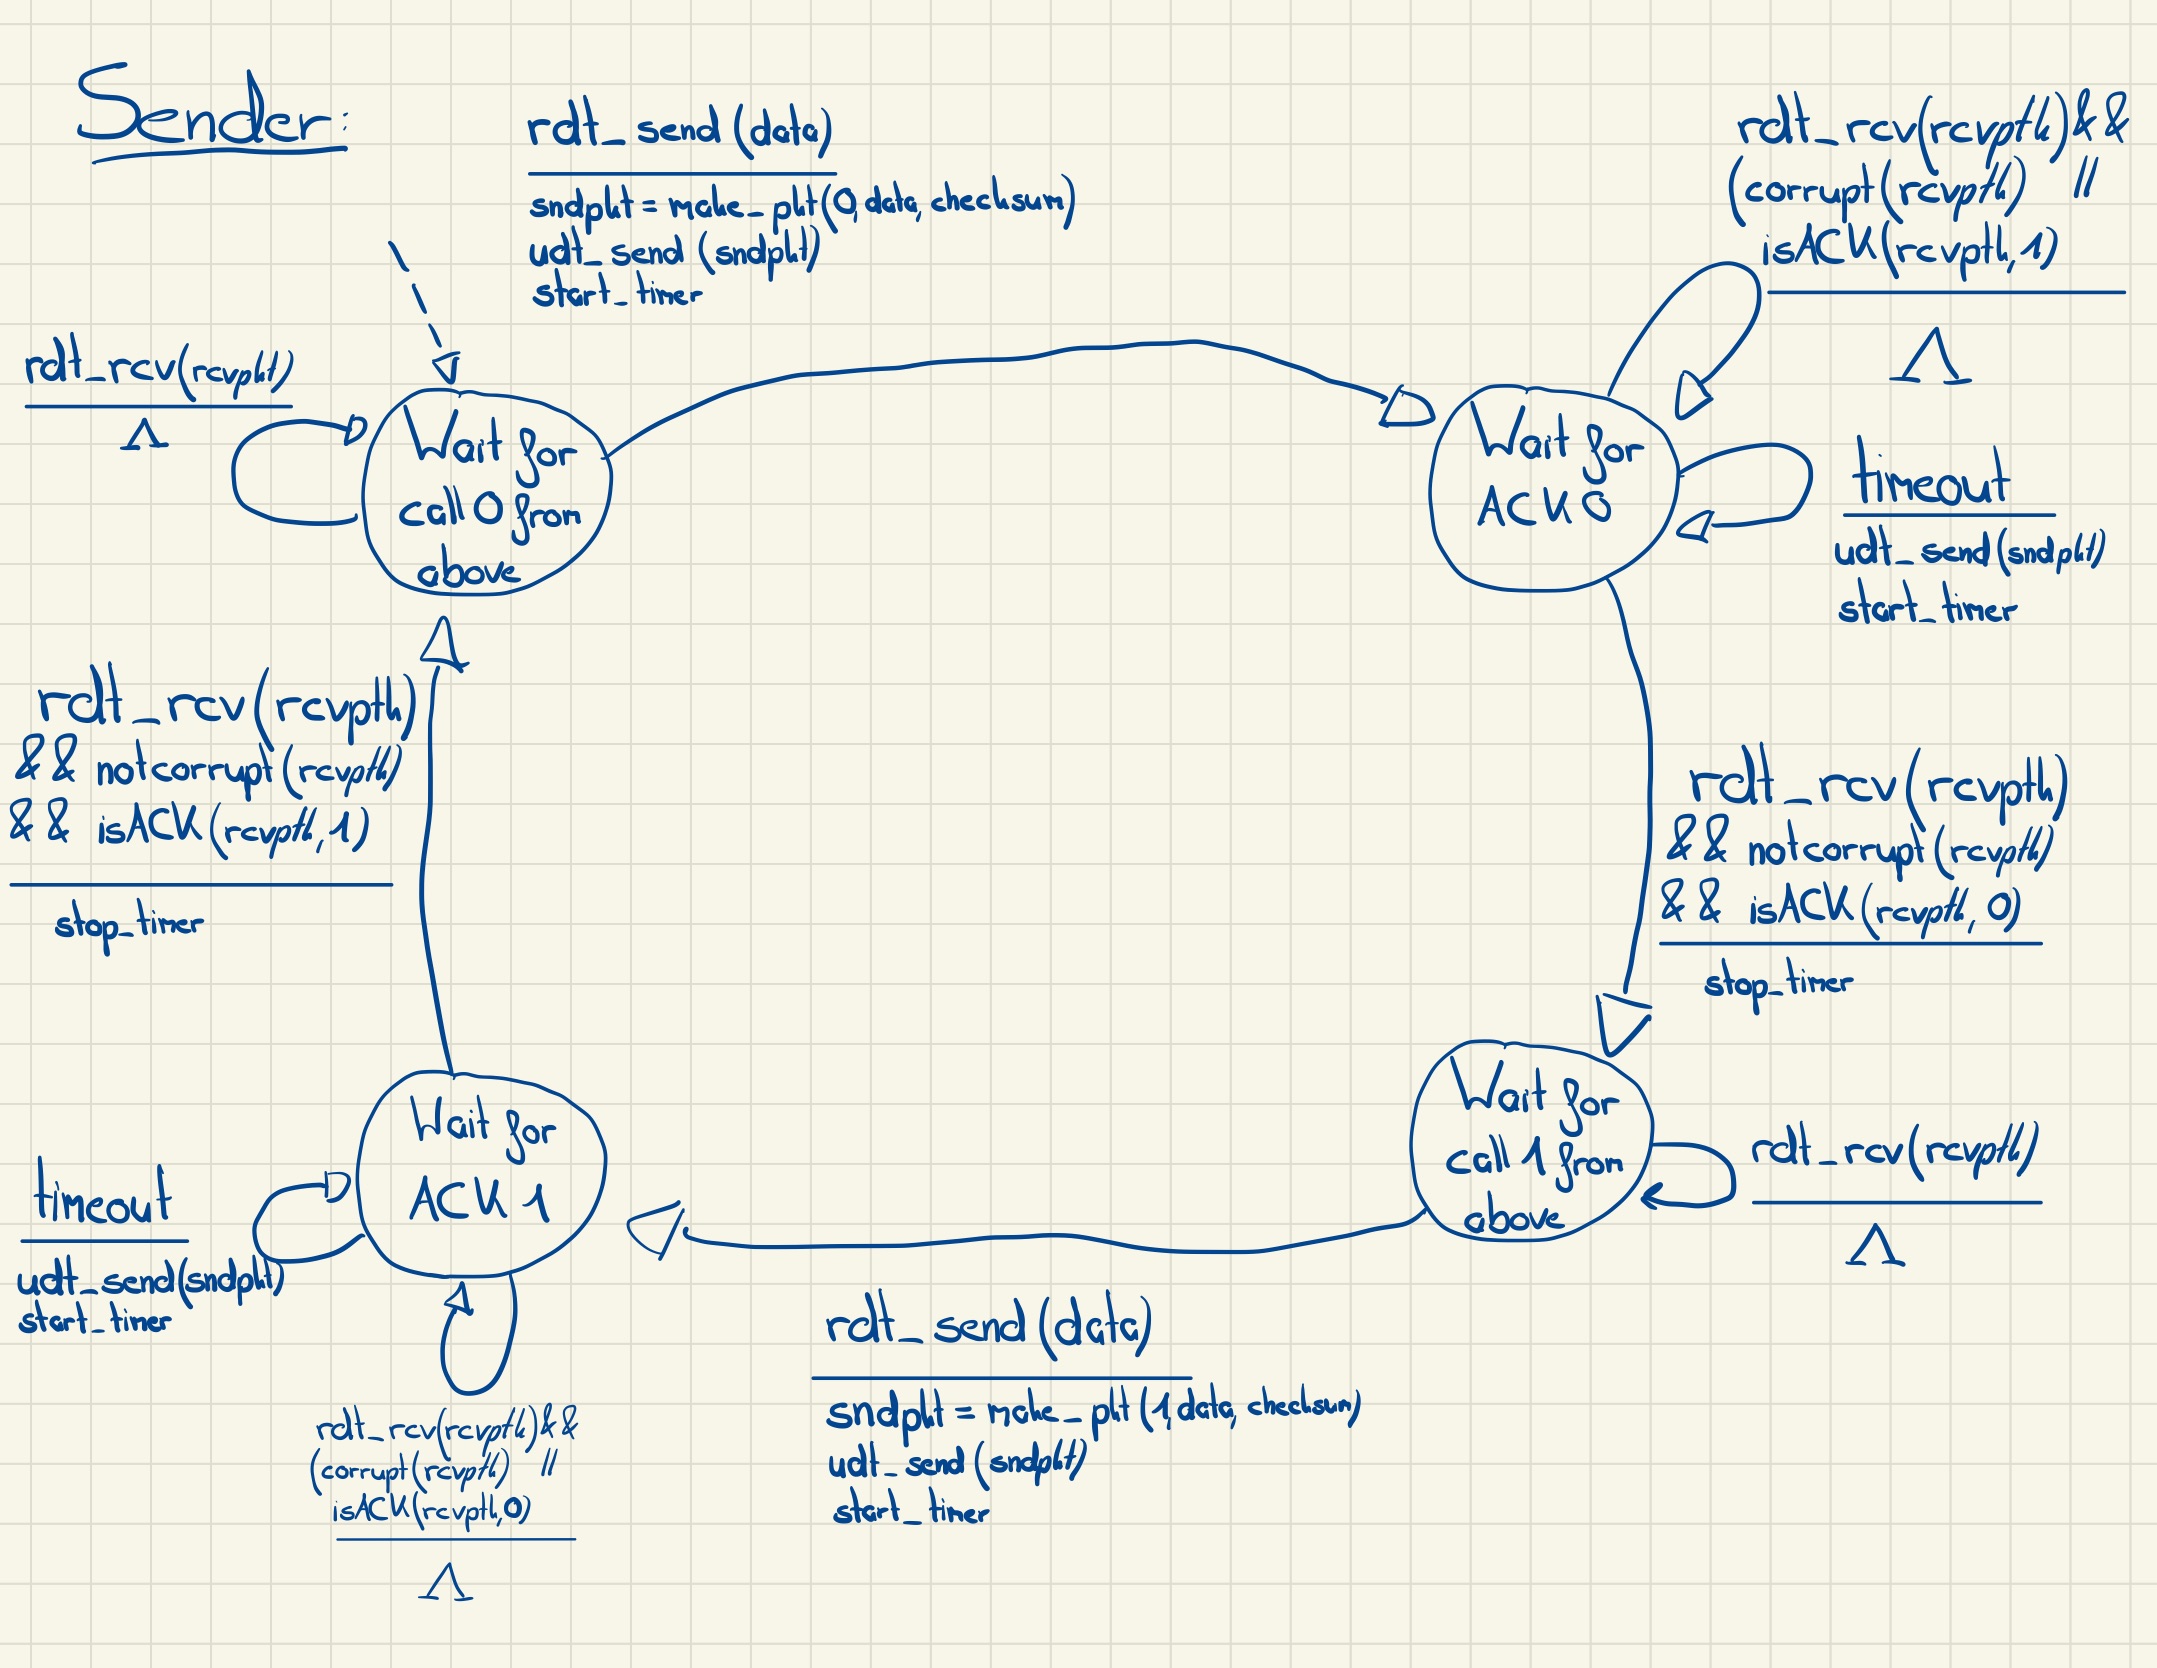 Sender:
rdt_send(data)
sndpkt = make_pkt(0, data, checksum)
udt_send(sndpkt)
start_timer
rdt_rcv(rcvpkt) &&
(corrupt(rcvpkt) ||
isACK(rcvpkt, 1)
Λ
rdt_rcv(rcvpkt)
Λ
Wait for
call 0 from
above
Wait for
ACK 0
timeout
udt_send(sndpkt)
start_timer
rdt_rcv(rcvpkt)
&& notcorrupt(rcvpkt)
&& isACK(rcvpkt, 1)
stop_timer
rdt_rcv(rcvpkt)
&& notcorrupt(rcvpkt)
&& isACK(rcvpkt, 0)
stop_timer
Wait for
ACK 1
Wait for
call 1 from
above
rdt_rcv(rcvpkt)
Λ
timeout
udt_send(sndpkt)
start_timer
rdt_send(data)
sndpkt = make_pkt(1, data, checksum)
udt_send(sndpkt)
start_timer
rdt_rcv(rcvpkt) &&
(corrupt(rcvpkt) ||
isACK(rcvpkt, 0)
Λ